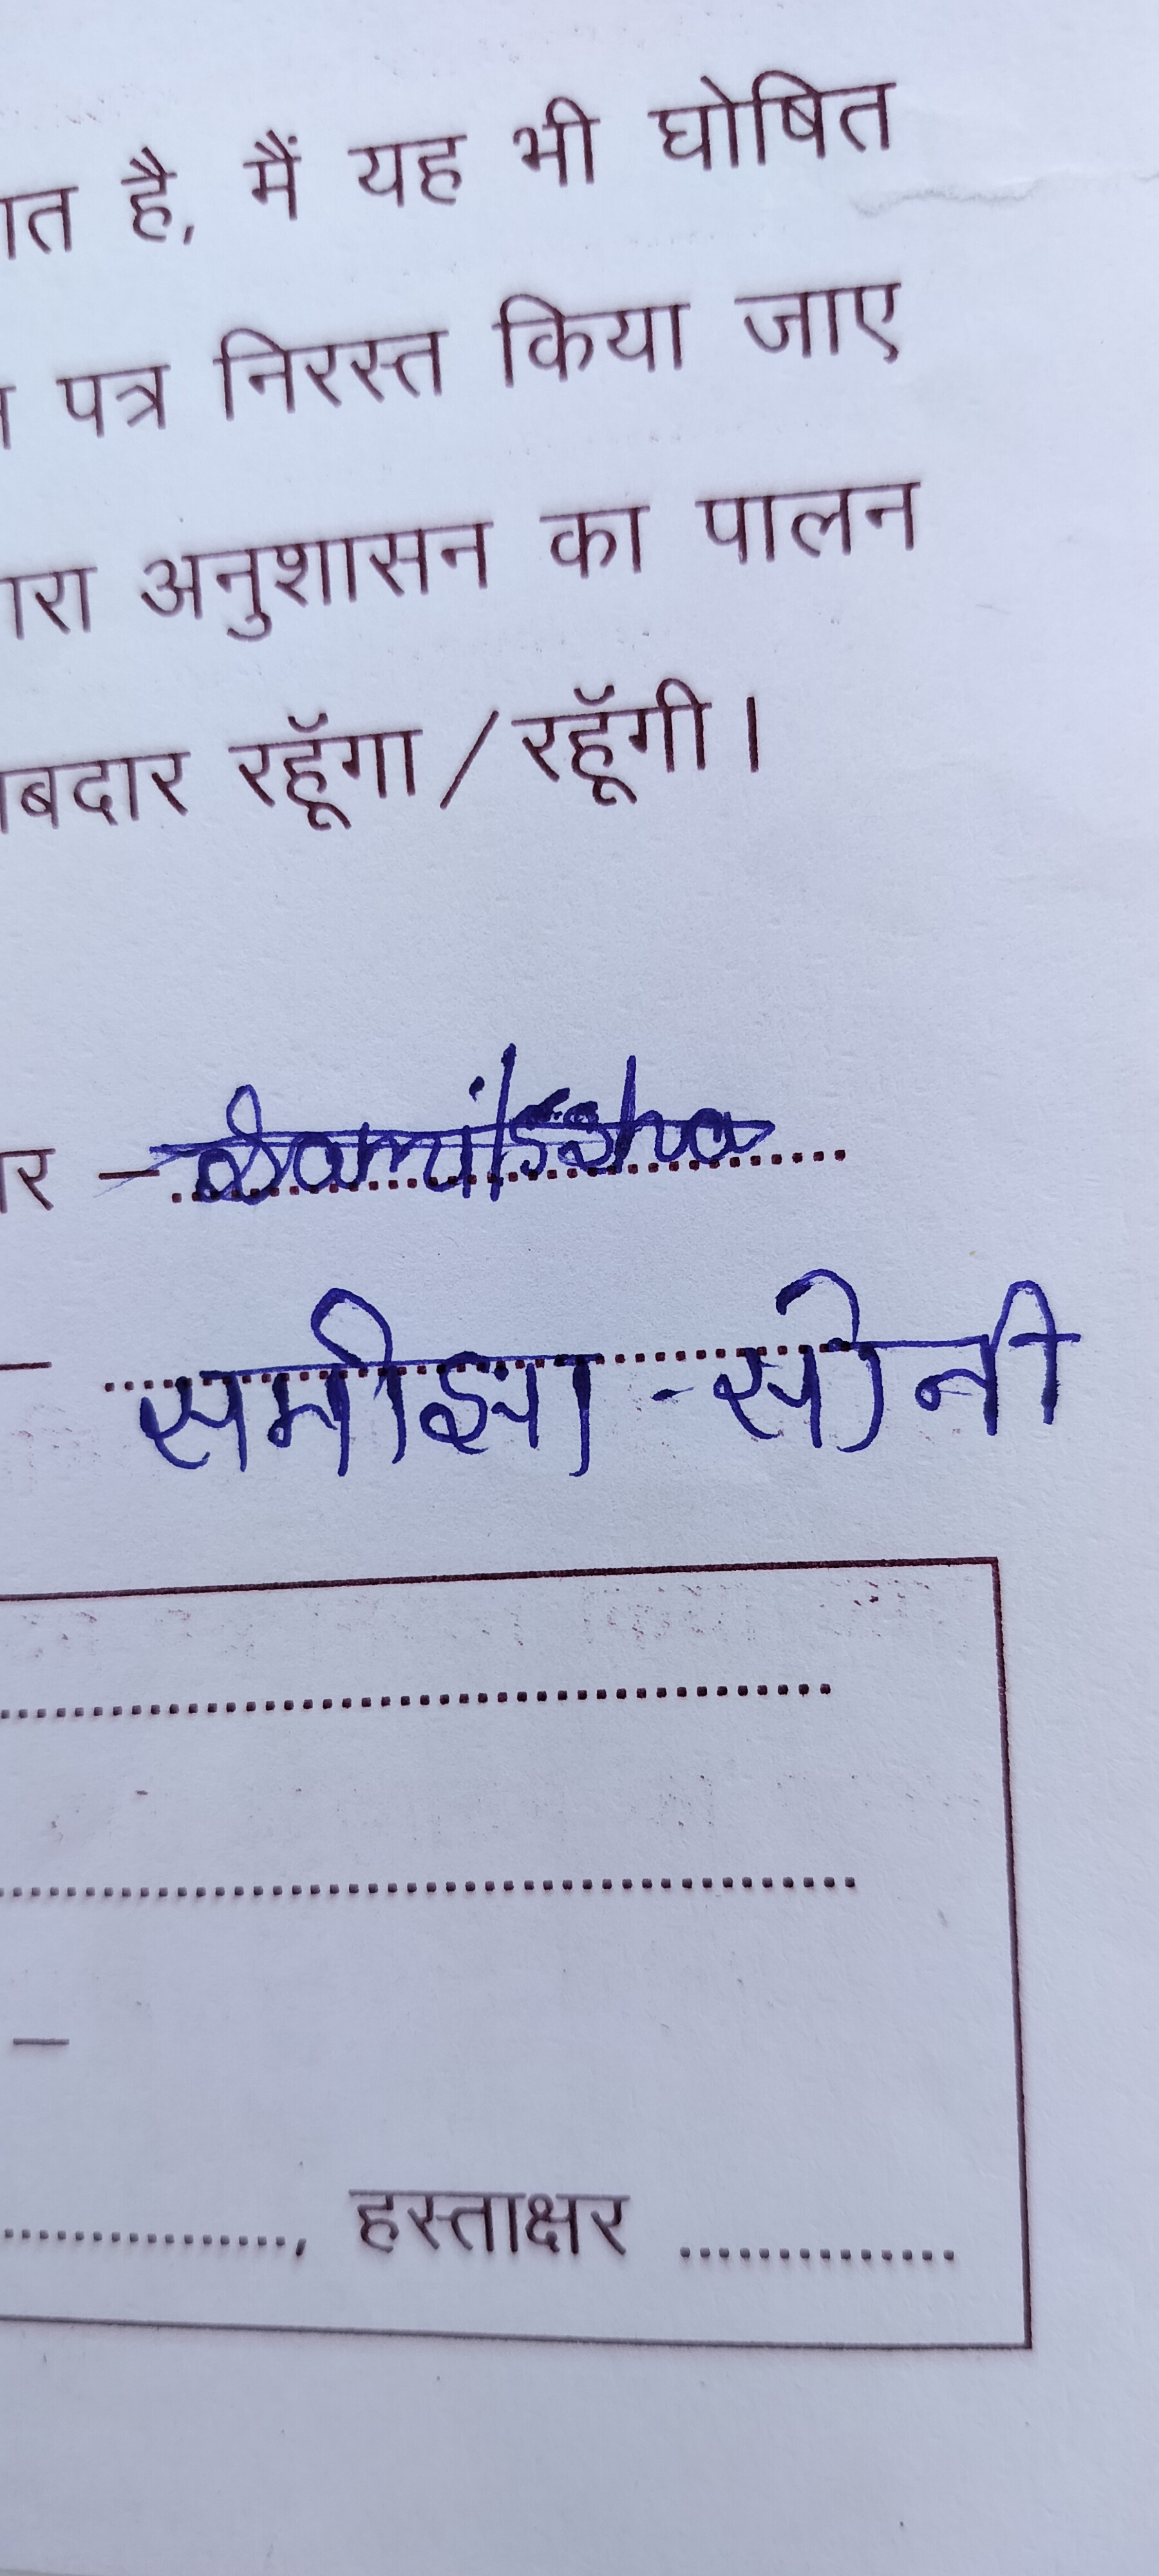 है, मैं यह भी घोषित
पत्र निरस्त किया जाए
अनुशासन का पालन
रहूॅगा / रहूॅगी।
–
– समीक्षा - सोनी
–
, हस्ताक्षर